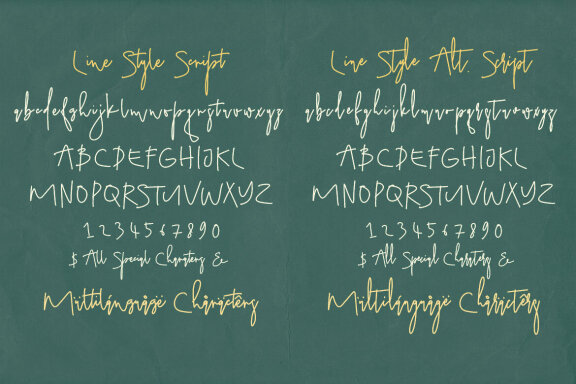 Line Style Script
abcdefghijklmnopqrstuvwxyz
ABCDEFGHIJKL
MNOPQRSTUVWXYZ
1234567890
$ All Special Characters &
Mültilángüágë Chåràctêrs
Line Style Alt. Script
abcdefghijklmnopqrstuvwxyz
ABCDEFGHIJKL
MNOPQRSTUVWXYZ
1234567890
$ All Special Characters &
Mültilángüágë Chåràctêrs